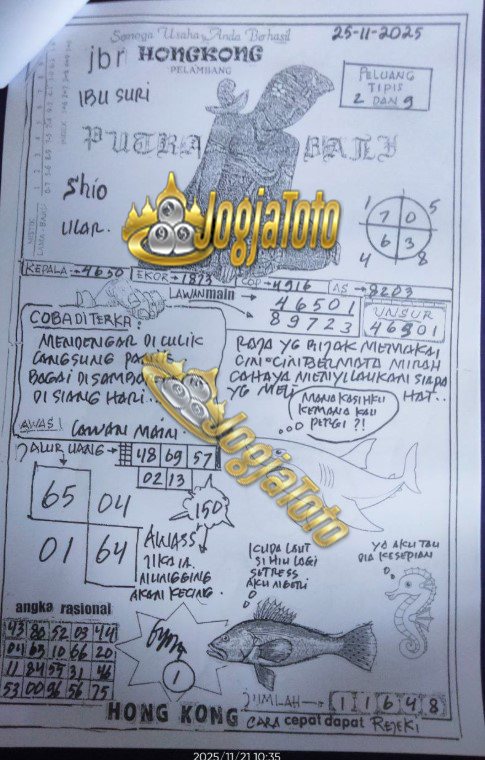 Semoga Usaha Anda Berhasil
25-11-2025
jbr HONGKONG
PELAMBANG
IBU SURI
PELUANG
TIPIS
2 DAN 9
PUTRA BALI
Shio
ULAR.
1 5
7 0
6 3
4 8
JogjaToto
KEPALA → 4650 EKOR → 1873 COP → 4916 AS → 8203
LAWAN main → 46501
89723
UNSUR
46501
COBA DITERKA:
MENDENGAR DI CULIK
LANGSUNG
BAGAI DI
DI SIANG HARI..
RAJA YG BIJAK MEMAKAI
CINCIN BERMATA MIRAH
CAHAYA MENYILAUKAN SIAPA
YG HAT..
MANA KASIHKU
KEMANA KAU
PERGI ?!
AWAS! LAWAN MAIN.
JogjaToto
ALUR UANG → 48 69 57
02 13
65 04
01 64
150
AWASS
JIKA IA
NUNGGING
AKAN KECING.
KUDA LAUT
SIHIU LAGI
STRESS
YA AKU TAU
DIA KESEPIAN
angka rasional
43 80 52 03 44
04 65 10 66 20
11 84 55 31 46
53 00 96 56 75
1
JUMLAH → 1 1 6 4 8
HONG KONG
CARA cepat dapat REJEKI
2025/11/21 10:35